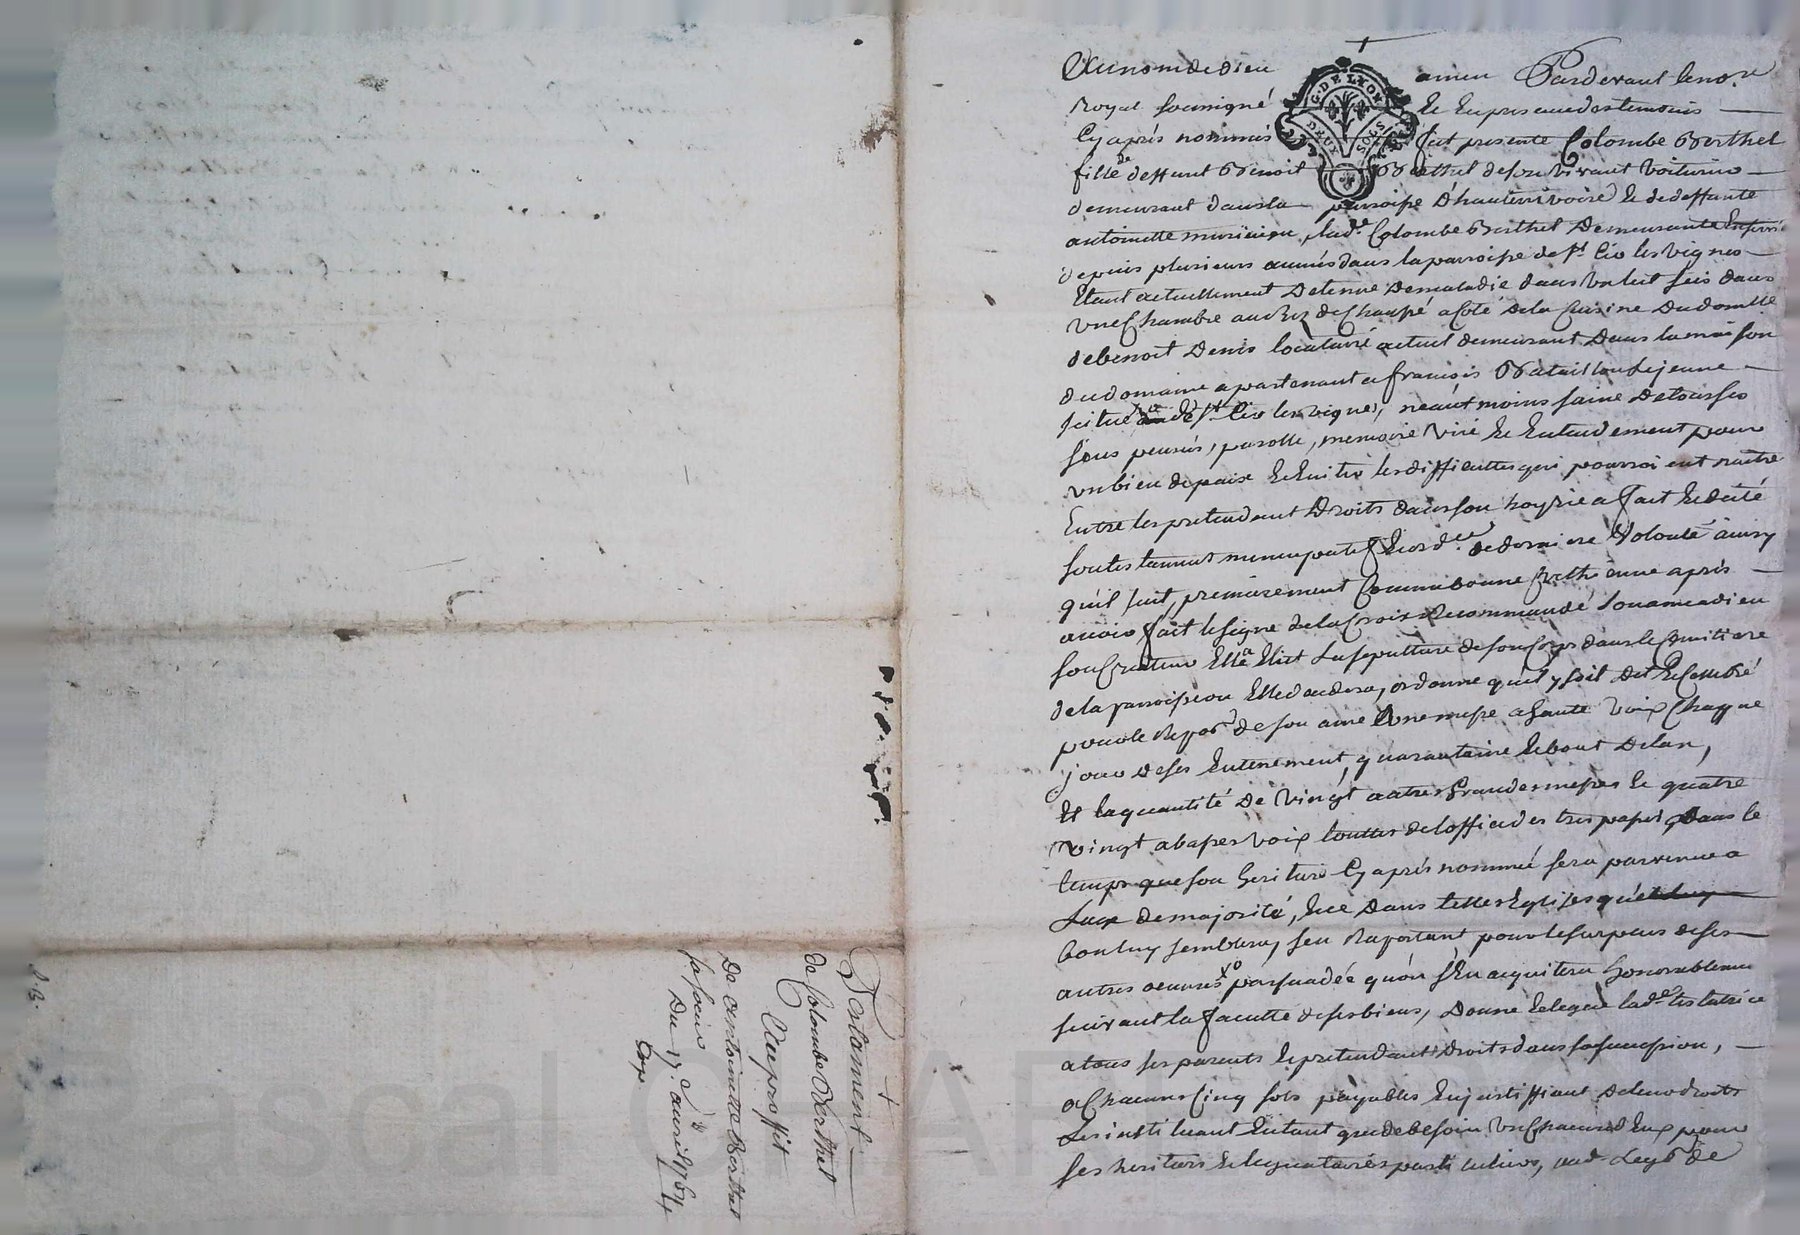 Au nom de dieu amen Pardevant le no.re
Royal soussigné Et En presence des temoins
Cy après nommés fut presente Colombe Berthel
fille de deffunt Benoit Berthel de son vivant voiturier
demeurant dans la parroisse D'hauterivoire Et de deffunte
antoinette lad.e Colombe Berthel Demeurante
depuis plusieurs années dans la parroisse de s.t Cir les vignes
Etant actuellement Detenue De maladie dans un lit sis dans
une Chambre au Rez de Chaussé a Coté de la Cuisine Du domlle
de benoit Denis locataire actuel demeurant Dans la maison
du domaine apartenant a françois Bataillon Le jeune
scitué de s.t Cir les vignes, neantmoins saine De tous ses
sens pensés, parolle, memoire vüe Et Entendement pour
un bien de paix Et Eviter les difficultes qui pourroient naitre
Entre les pretendant Droits dans son hoyrie a fait Et dicté
son testament nuncupatif Et ord.ce de derniere Volonté ainsy
qu'il suit, premierement Comme bonne Crethienne après
avoir fait le signe de la Croix Recommandé son ame a dieu
son Createur Elle a Elut La sepulture de son Corps dans le Cimitiere
de la parroisse ou Elle decedera, ordonne qu'il y soit dit Et Celebré
pour le Repos de son ame Une messe a haute voix Chaque
jour de ses Enterement, quarantaine Et bout De lan,
Et la quantité De vingt autres Grandes messes Et quatre
vingt a basses voix toutes de loffice des trepassés Dans le
temps que son heritiere Cy après nommée sera parvenue a
Lage de majorité, Et ce Dans telles Eglises que
bon luy semblera, sen Raportant pour le surplus de ses
autres oeuvres persuadée qu'on s'En acquitera honorablement
suivant la faculté de ses biens, Donne Et legue lad.e testatrice
a tous ses parents Et pretendants Droits dans sa succession,
a Chacuns Cinq sols payables En justiffiant De leur droits
Les instituant En tant que de besoin Un Chacun d'Eux pour
ses heritiers Et legataires particuliers,
Testament
de Colombe Berthel
Au proffit
De antoinette Berthel
sa soeur
Du 17.e avril 1764
Exp